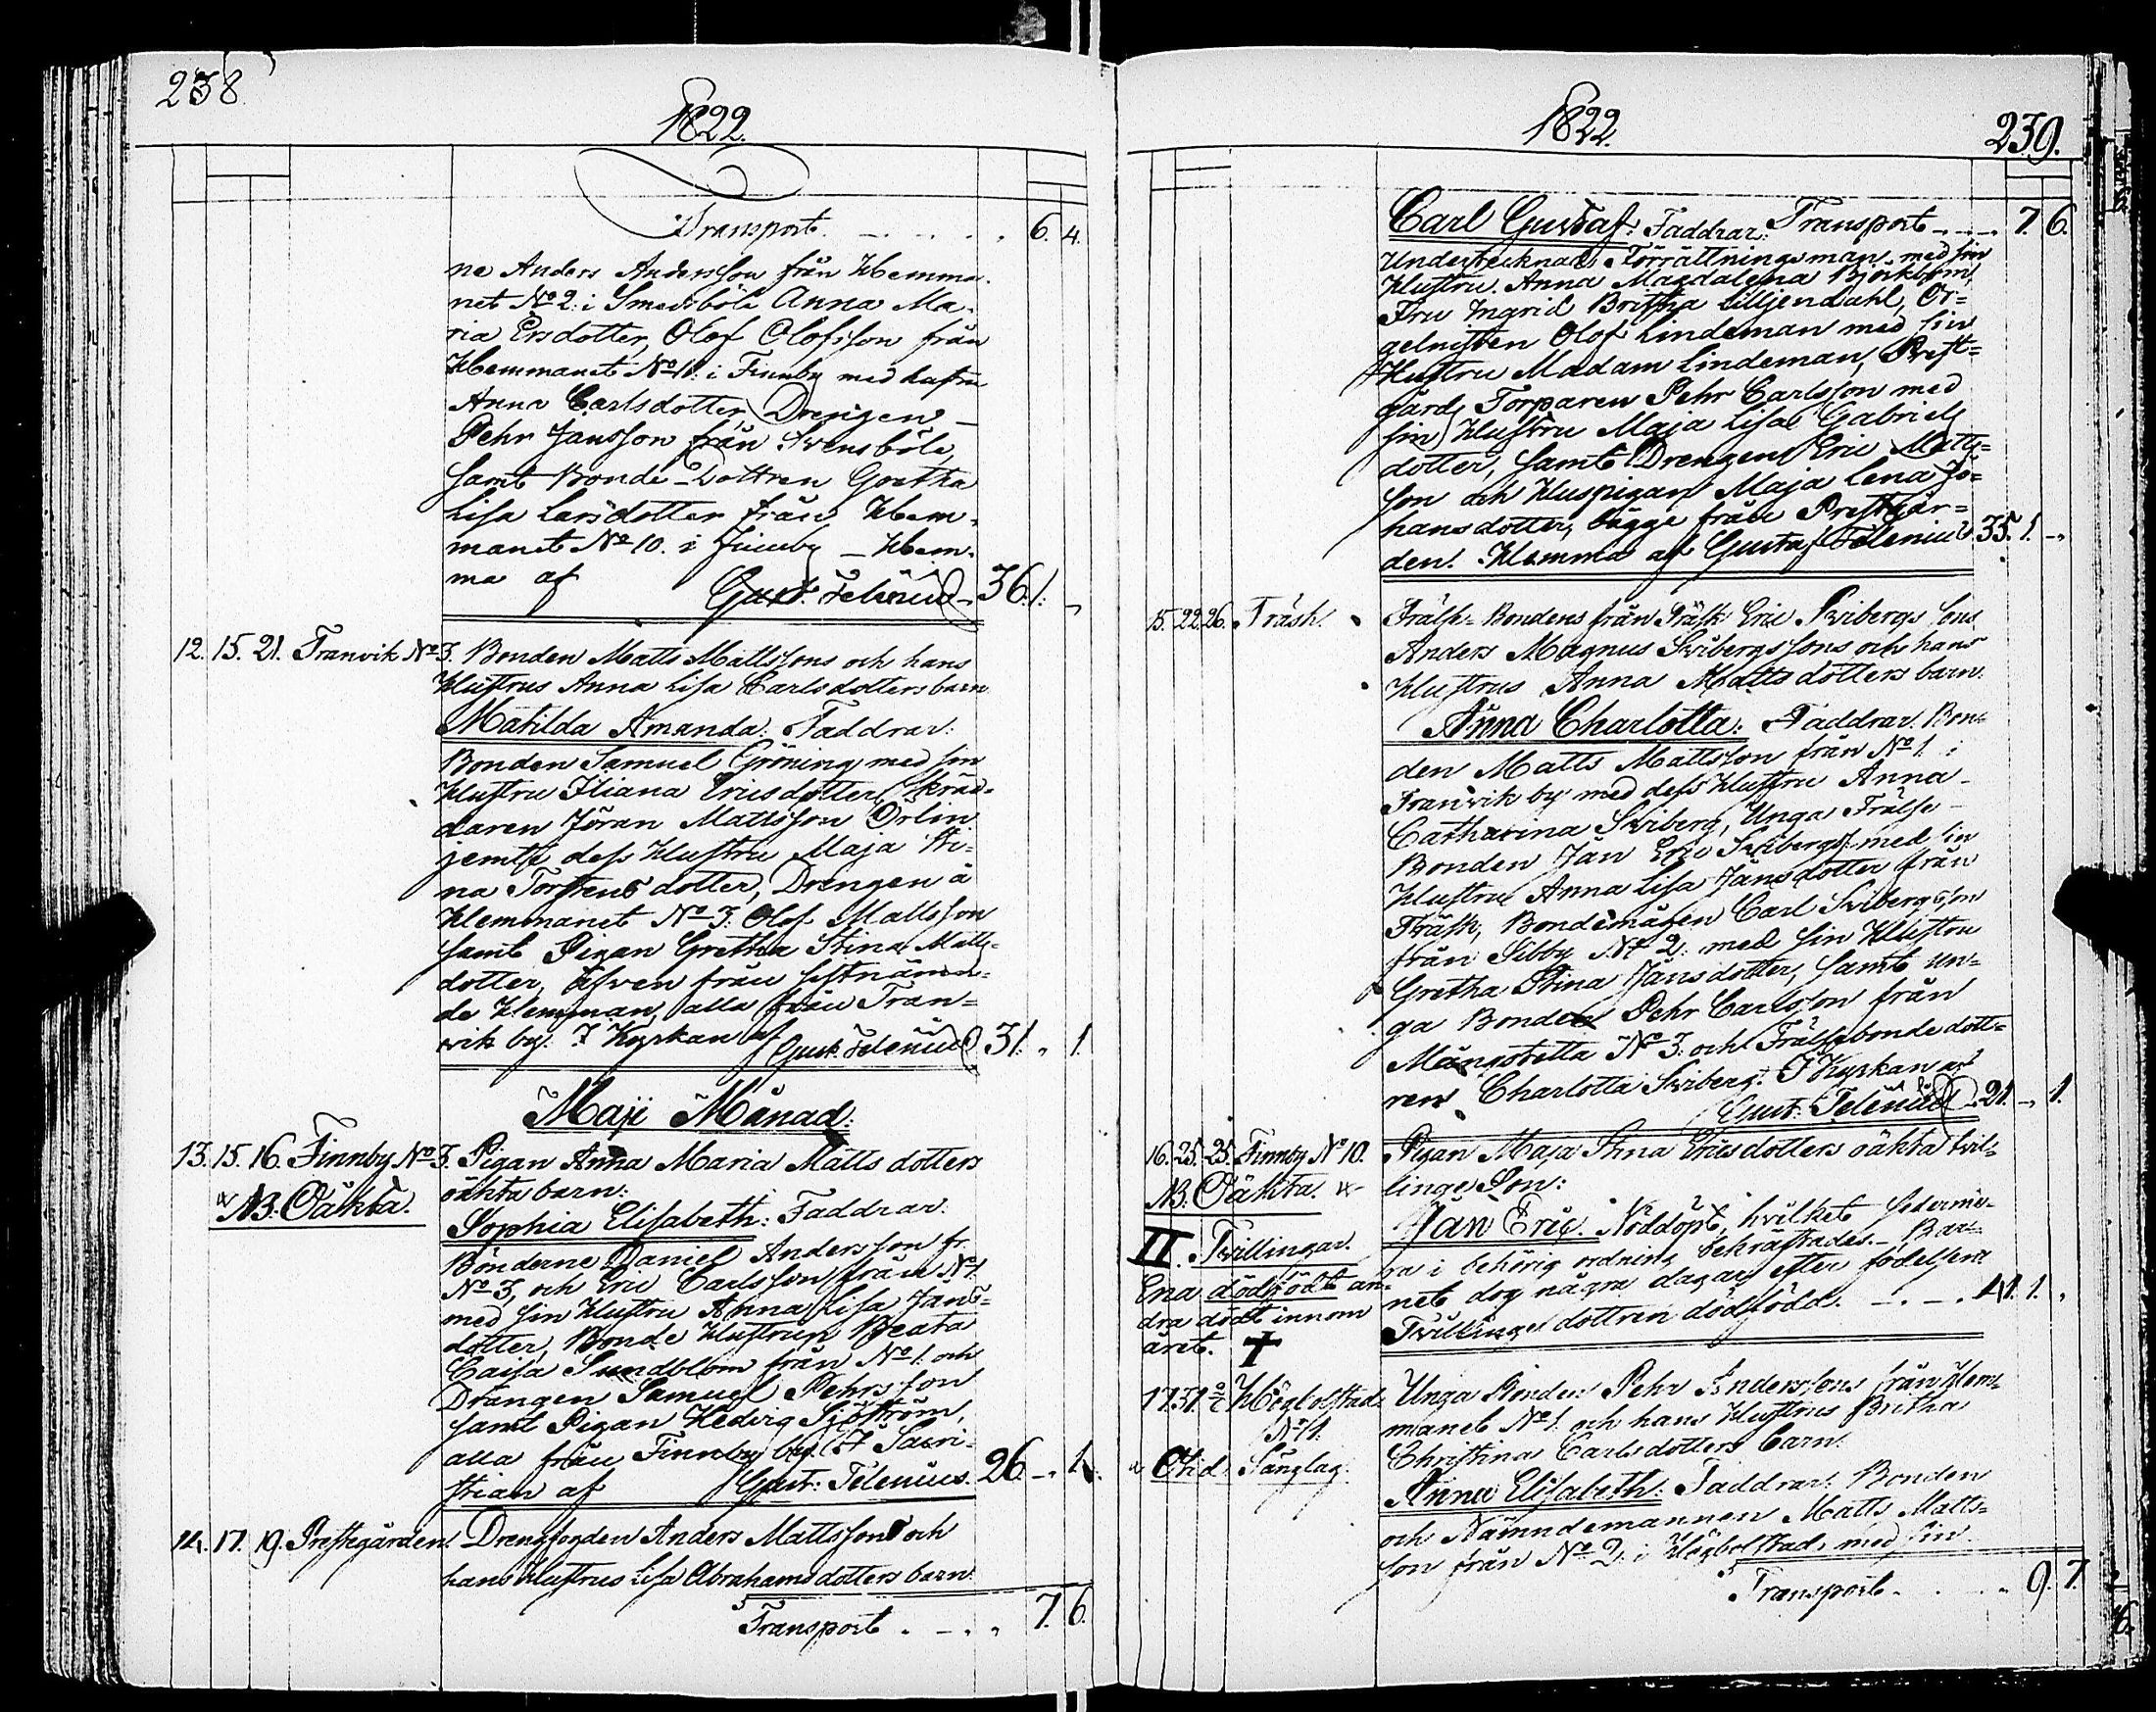 238.
1822.
Transport. 6. 4.
ne Anders Andersson från Hemma-
net No 2. i Smedsböle Anna Ma-
ria Ersdotter, Olof Olofsson från
Hemmanet No 10. i Finnby med hustru
Anna Carlsdotter, Drengen
Pehr Jansson från Svensböle,
samt Bonde-Dottren Gretha
Lisa Larsdotter från Hem-
manet No 10. i Finnby - Hem-
ma af Gust. Felenius. 36. 1. -
12. 15. 21. Tranvik No 3. Bonden Matts Mattssons och hans
Hustrus Anna Lisa Carlsdotters barn
Matilda Amanda: Faddrar:
Bonden Samuel Gröning med sin
Hustru Iliana Ericsdotter, Skräd-
daren Jöran Mattsson Örlin
jemte dess Hustru Maja Sti-
na Torstensdotter, Drengen å
Hemmanet No 3. Olof Mattsson
samt Pigan Gretha Stina Matts-
dotter, äfven från sistnämn-
de Hemman, alla från Tran-
vik by. I Kyrkan af
Gust. Felenius 31. " 1.
Maji Månad:
13. 15. 16. Finnby No 3. Pigan Anna Maria Matts dotters
NB. Oäkta. oäkta barn:
Sophia Elisabeth: Faddrar:
Bönderne Daniel Andersson fr.
No 3, och Eric Carlsson från No 1.
med sin Hustru Anna Lisa Jans-
dotter, Bonde Hustrun Beata
Caisa Sundblom från No 1. och
Drängen Samuel Pehrsson
samt Pigan Hedvig Sjöström,
alla från Finnby by. I Sacri-
stian af Gust: Felenius. 26. - 1.
14. 17. 19. Prestegården. Drengfogden Anders Mattssons och
hans Hustrus Lisa Abrahamsdotters barn
Transport. 7. 6.
1822.
239.
Carl Gustaf: Faddrar: Transport 7. 6.
Undertecknad Förrättningsman med sin
Hustru Anna Magdalena Björkbom,
Fru Ingrid Brittha Lilljendahl, Or-
gelnisten Olof Lindeman med sin
Hustru Madam Lindeman, Prest-
gårds Torparen Pehr Carlsson med
sin Hustru Maja Lisa Gabriels
dotter, samt Drengen Eric Matts-
son och Huspigan Maja Lena Jo-
hansdotter, bägge från Prestgår-
den. Hemma af Gustaf Felenius 35. 1. -
15. 22. 26. Träsk. Frälse-Bondens från Träsk Eric Svibergs sons
Anders Magnus Svibergssons och hans
Hustrus Anna Mattsdotters barn:
Anna Charlotta: Faddrar: Bon-
den Matts Mattsson från No 1. i
Tranvik by med dess Hustru Anna
Catharina Sviberg, Unga Frälse-
Bonden Jan Eric Svibergs med sin
Hustru Anna Lisa Jansdotter från
Träsk, Bondemågen Carl Svibergsson
från Sibby No 2. med sin Hustru
Gretha Stina Jansdotter, samt un-
ga Bonden Pehr Carlsson från
Mångstekta No 3. och Frälsebondedott-
ren Charlotta Sviberg. I Kyrkan af
Gust: Felenius 21. - 1.
16. 25. 25. Finnby No 10. Pigan Maja Stina Ericsdotters oäkta tvil-
NB: Oäkta. linge Son:
Jan Eric. Nöddöpt, hvilket sederme-
II. Tvillingar. ra i behörig ordning bekräftades. Bar-
Ena dödfödt an- net dog några dagar efter födelsen.
dra dödt innom Tvillinge dottren dödfödd. 41. 1. "
året. ✝
17. 31. 2/6 Högbolstad Unga Bonden Pehr Anderssons från Hem-
No 1. manet No 1. och hans Hustrus Britha
Christina Carlsdotters barn:
Otid. Sänglag.
Anna Elisabeth: Faddrar: Bonden
och Nämndemannen Matts Matts-
son från No 2. i Högbolstad med sin
Transport. 9. 7.